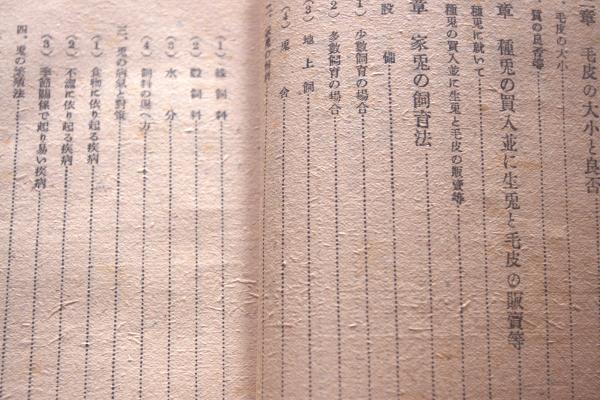 章 毛皮の大小と良否
毛皮の大小
質の良否等
章 種兎の買入並に生兎と毛皮の販賣等
種兎に就いて
種兎の買入並に生兎と毛皮の販賣等
章 家兎の飼育法
設備
(1) 少數飼育の場合
(2) 多數飼育の場合
(3) 地上飼
(4) 兎舍
(1) 綠飼料
(2) 穀飼料
(3) 水分
(4) 飼料の與へ方
三、兎の病氣と對策
(1) 食物に依り起る疾病
(2) 不潔に依り起る疾病
(3) 季節關係で起り易い疾病
四、兎の繁殖法